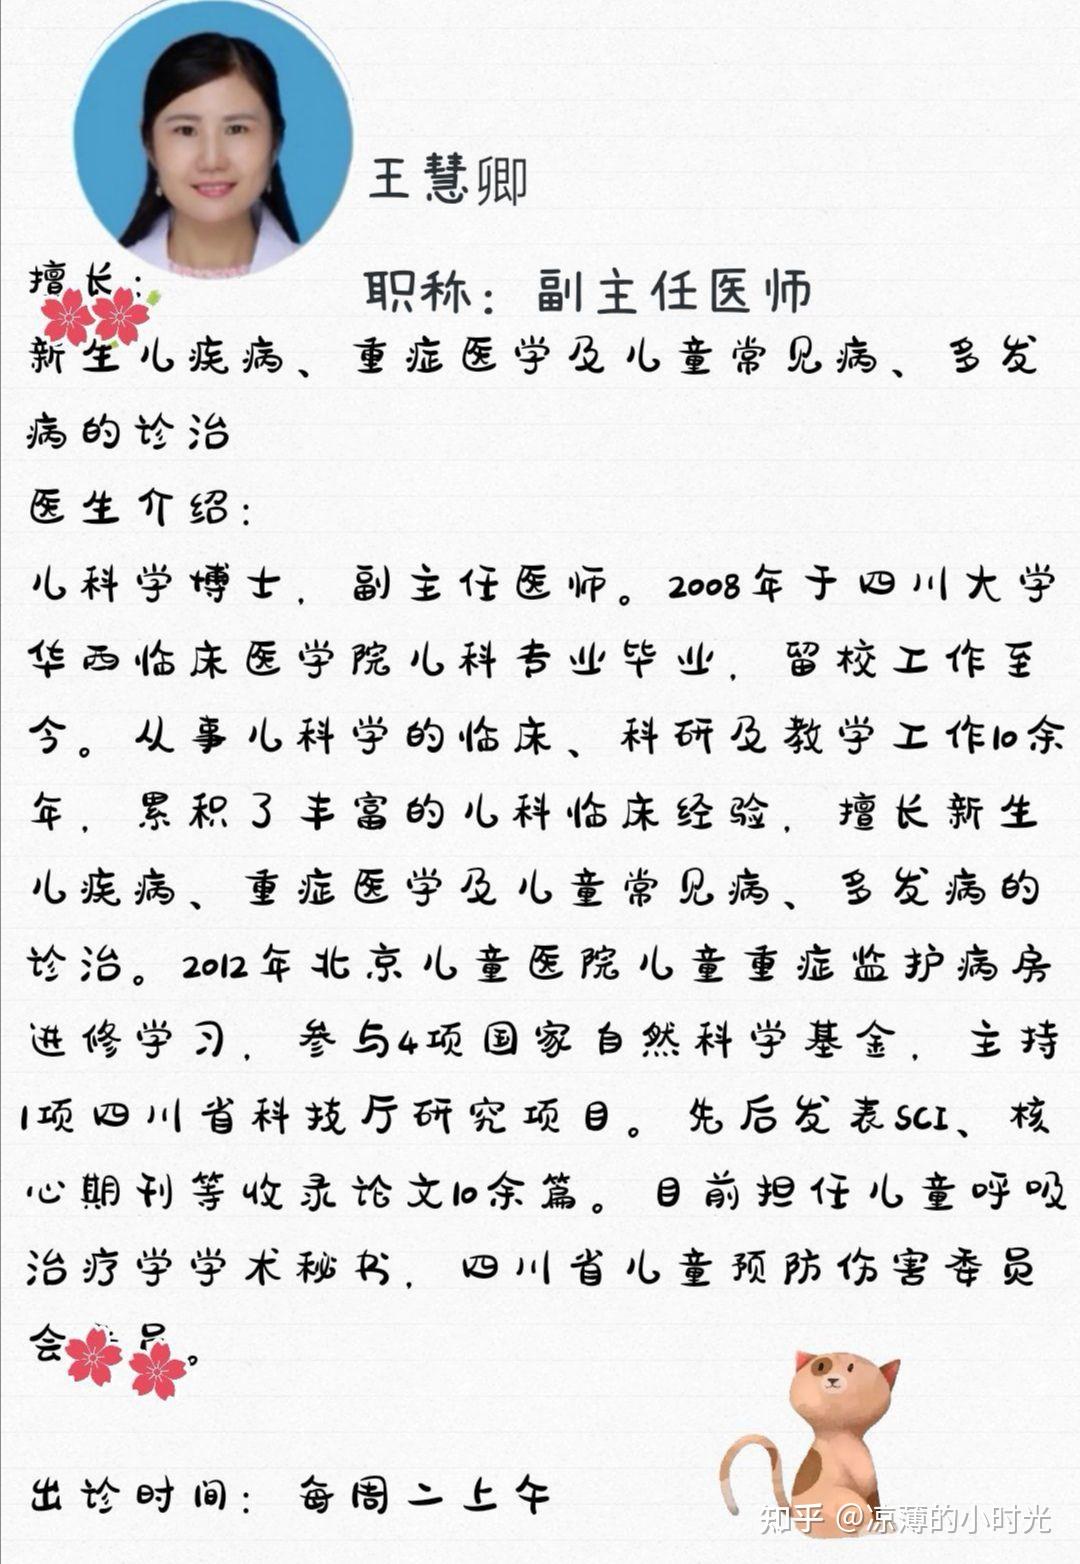 王慧卿
擅长：
职称：副主任医师
新生儿疾病、重症医学及儿童常见病、多发
病的诊治
医生介绍：
儿科学博士，副主任医师。2008年于四川大学
华西临床医学院儿科专业毕业，留校工作至
今。从事儿科学的临床、科研及教学工作10余
年，累积了丰富的儿科临床经验，擅长新生
儿疾病、重症医学及儿童常见病、多发病的
诊治。2012年北京儿童医院儿童重症监护病房
进修学习，参与4项国家自然科学基金，主持
1项四川省科技厅研究项目。先后发表SCI、核
心期刊等收录论文10余篇。目前担任儿童呼吸
治疗学学术秘书，四川省儿童预防伤害委员
会员。
出诊时间：每周二上午
知乎 @凉薄的小时光